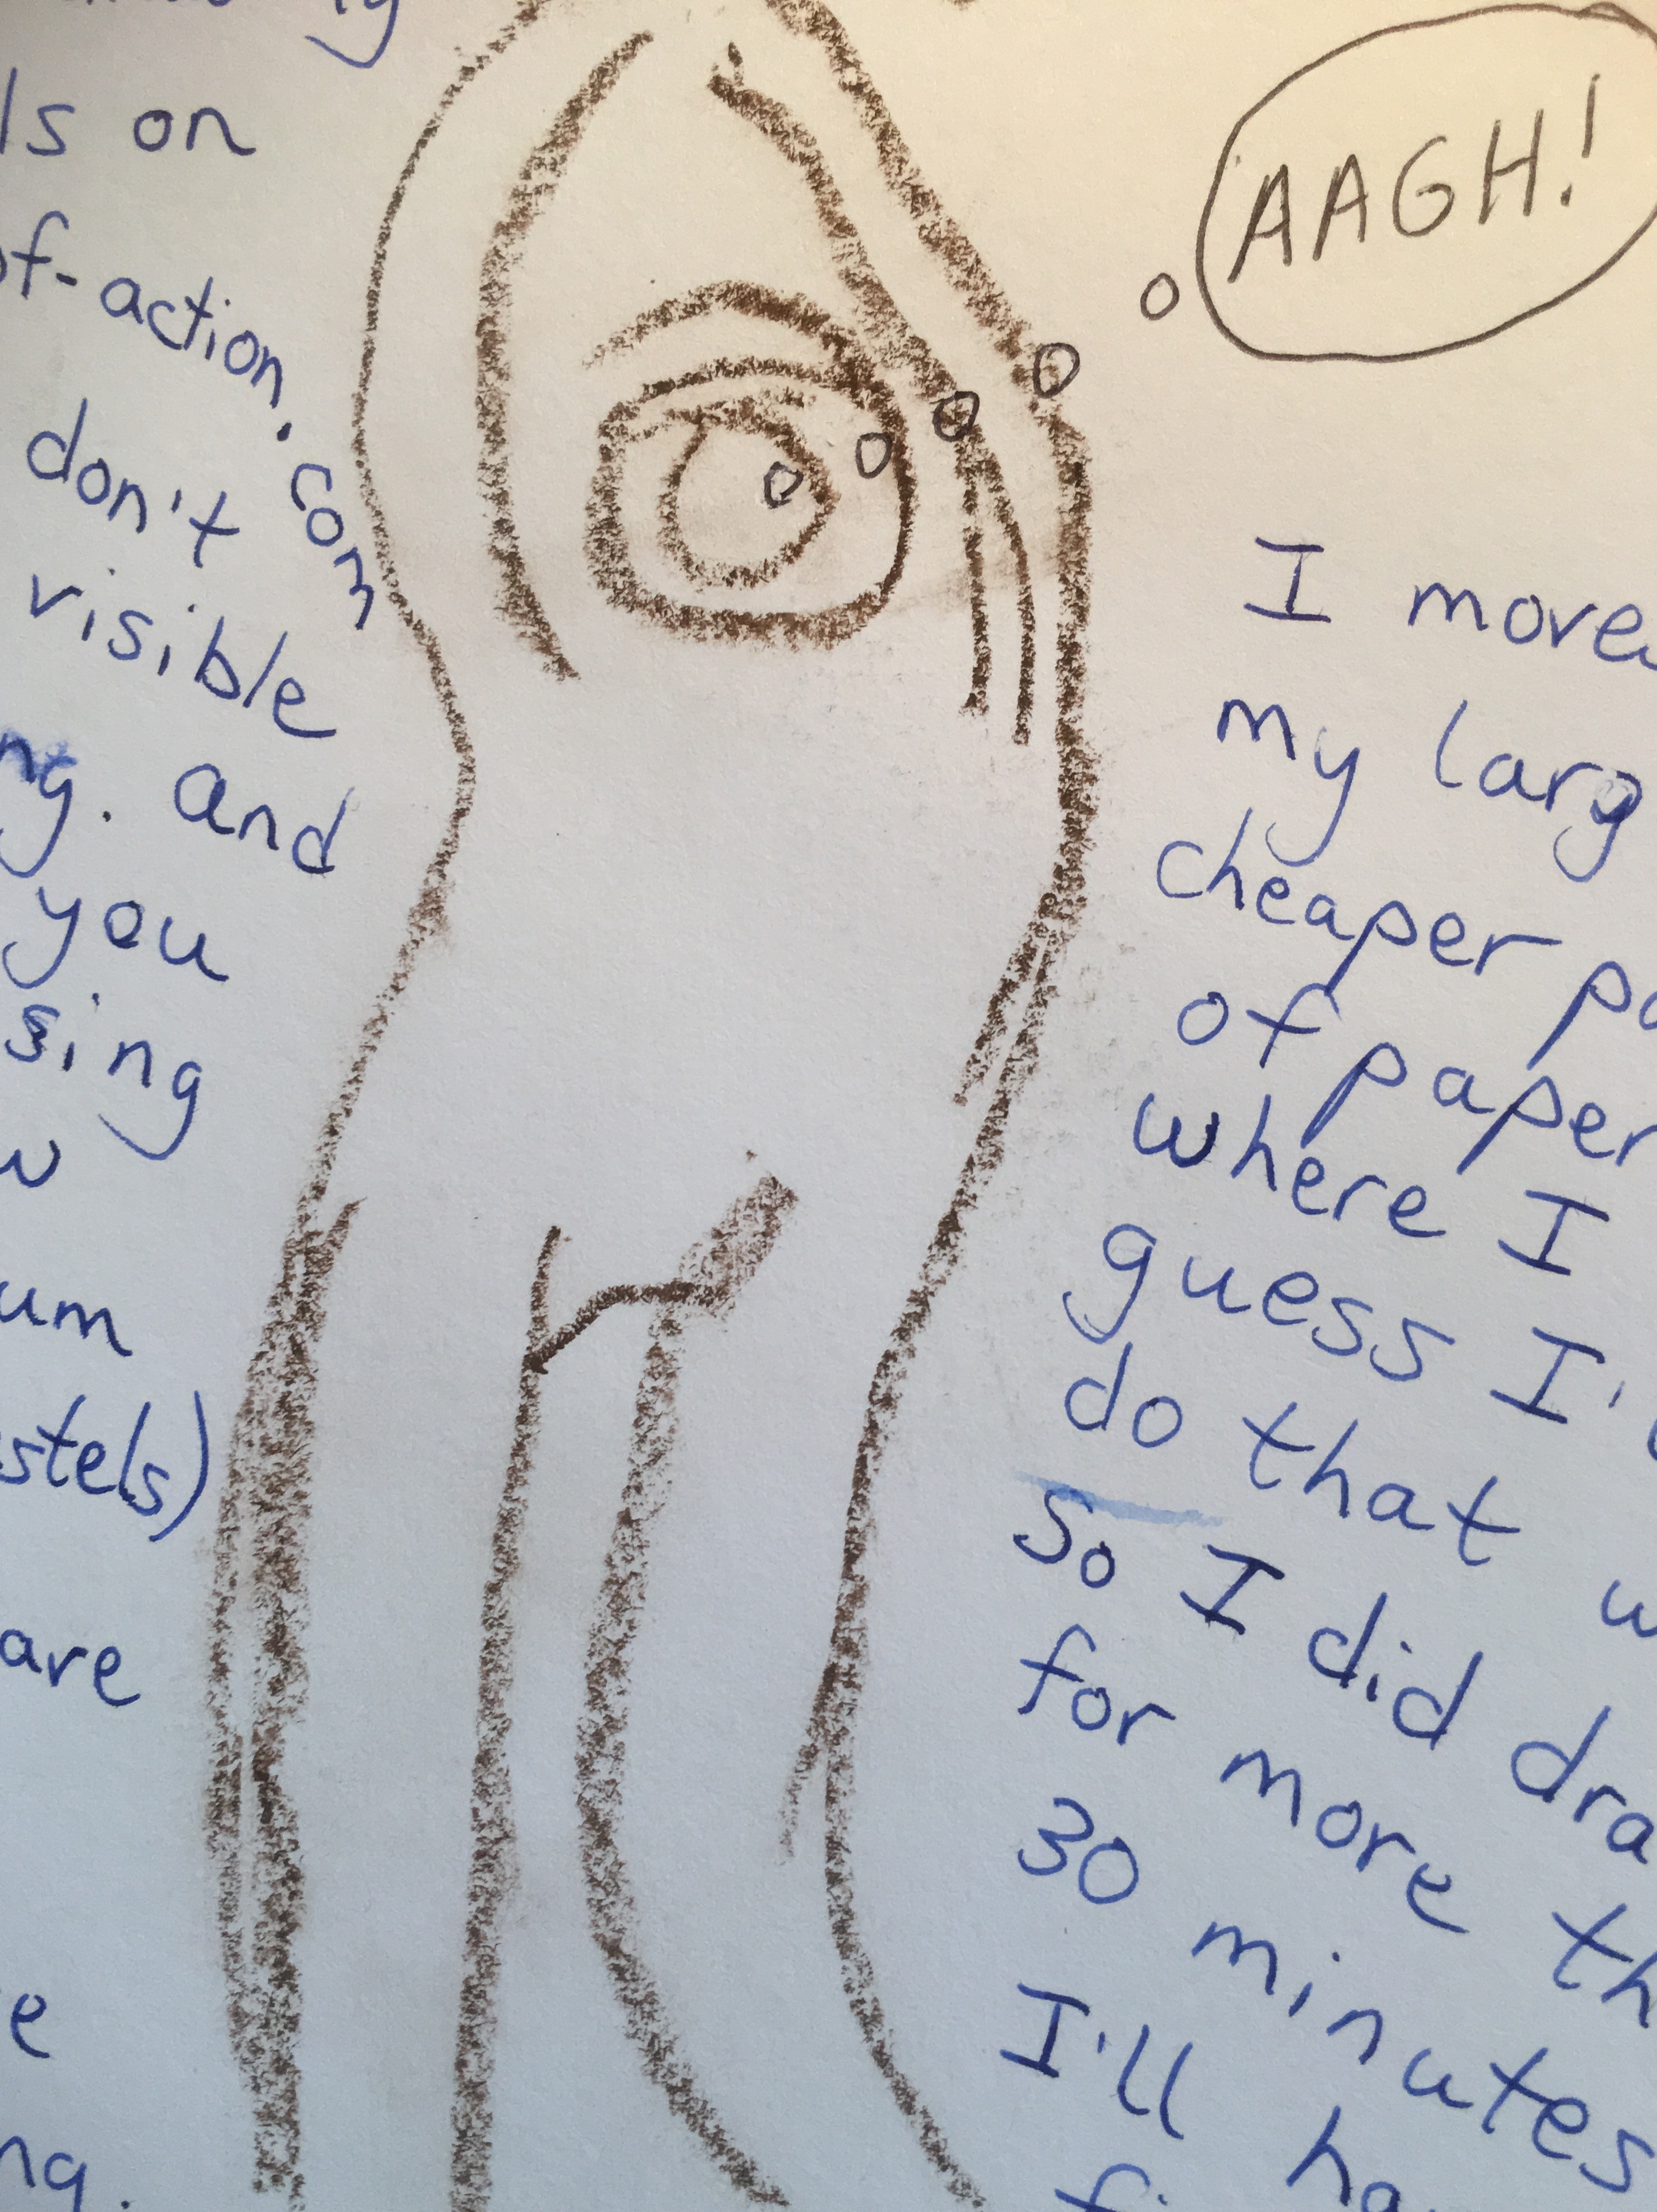 ls on
of-action.com
don't
visible
ng. and
you
sing
w
um
stels)
are
e
ng.
AAGH!
I move
my larg
cheaper pa
of paper
where I
guess I'l
do that w
So I did dra
for more th
30 minutes
I'll ha
fi